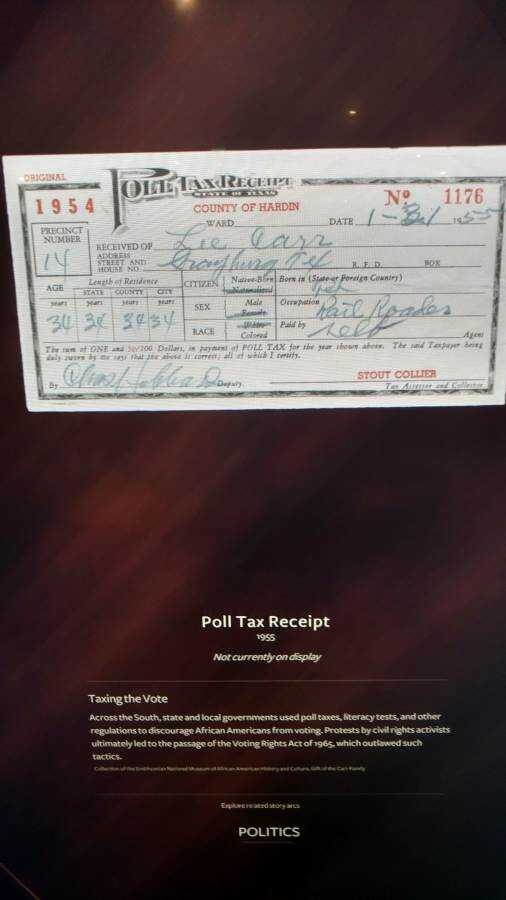 ORIGINAL
POLL TAX RECEIPT
STATE OF TEXAS
1954
COUNTY OF HARDIN
Nº 1176
WARD DATE 1-31 1955
PRECINCT NUMBER 14
RECEIVED OF Lee Carr
ADDRESS STREET AND HOUSE NO. Grayburg Tex R. F. D. BOX
AGE Length of Residence CITIZEN Native-Born Naturalized Born in (State or Foreign Country) Tex
years STATE years COUNTY years CITY years
34 34 34 34
SEX Male Female Occupation Rail Roader
RACE White Colored Paid by self Agent
The sum of ONE and 50/100 Dollars, in payment of POLL TAX for the year shown above. The said Taxpayer being
duly sworn by me says that the above is correct; all of which I certify.
By Deputy.
STOUT COLLIER
Tax Assessor and Collector
Poll Tax Receipt
1955
Not currently on display
Taxing the Vote
Across the South, state and local governments used poll taxes, literacy tests, and other
regulations to discourage African Americans from voting. Protests by civil rights activists
ultimately led to the passage of the Voting Rights Act of 1965, which outlawed such
tactics.
Collection of the Smithsonian National Museum of African American History and Culture, Gift of the Carr Family
Explore related story arcs
POLITICS